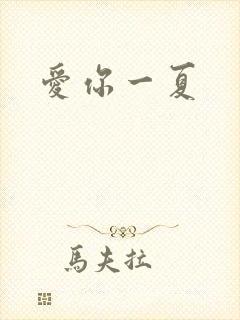 愛你一夏
馬夫拉